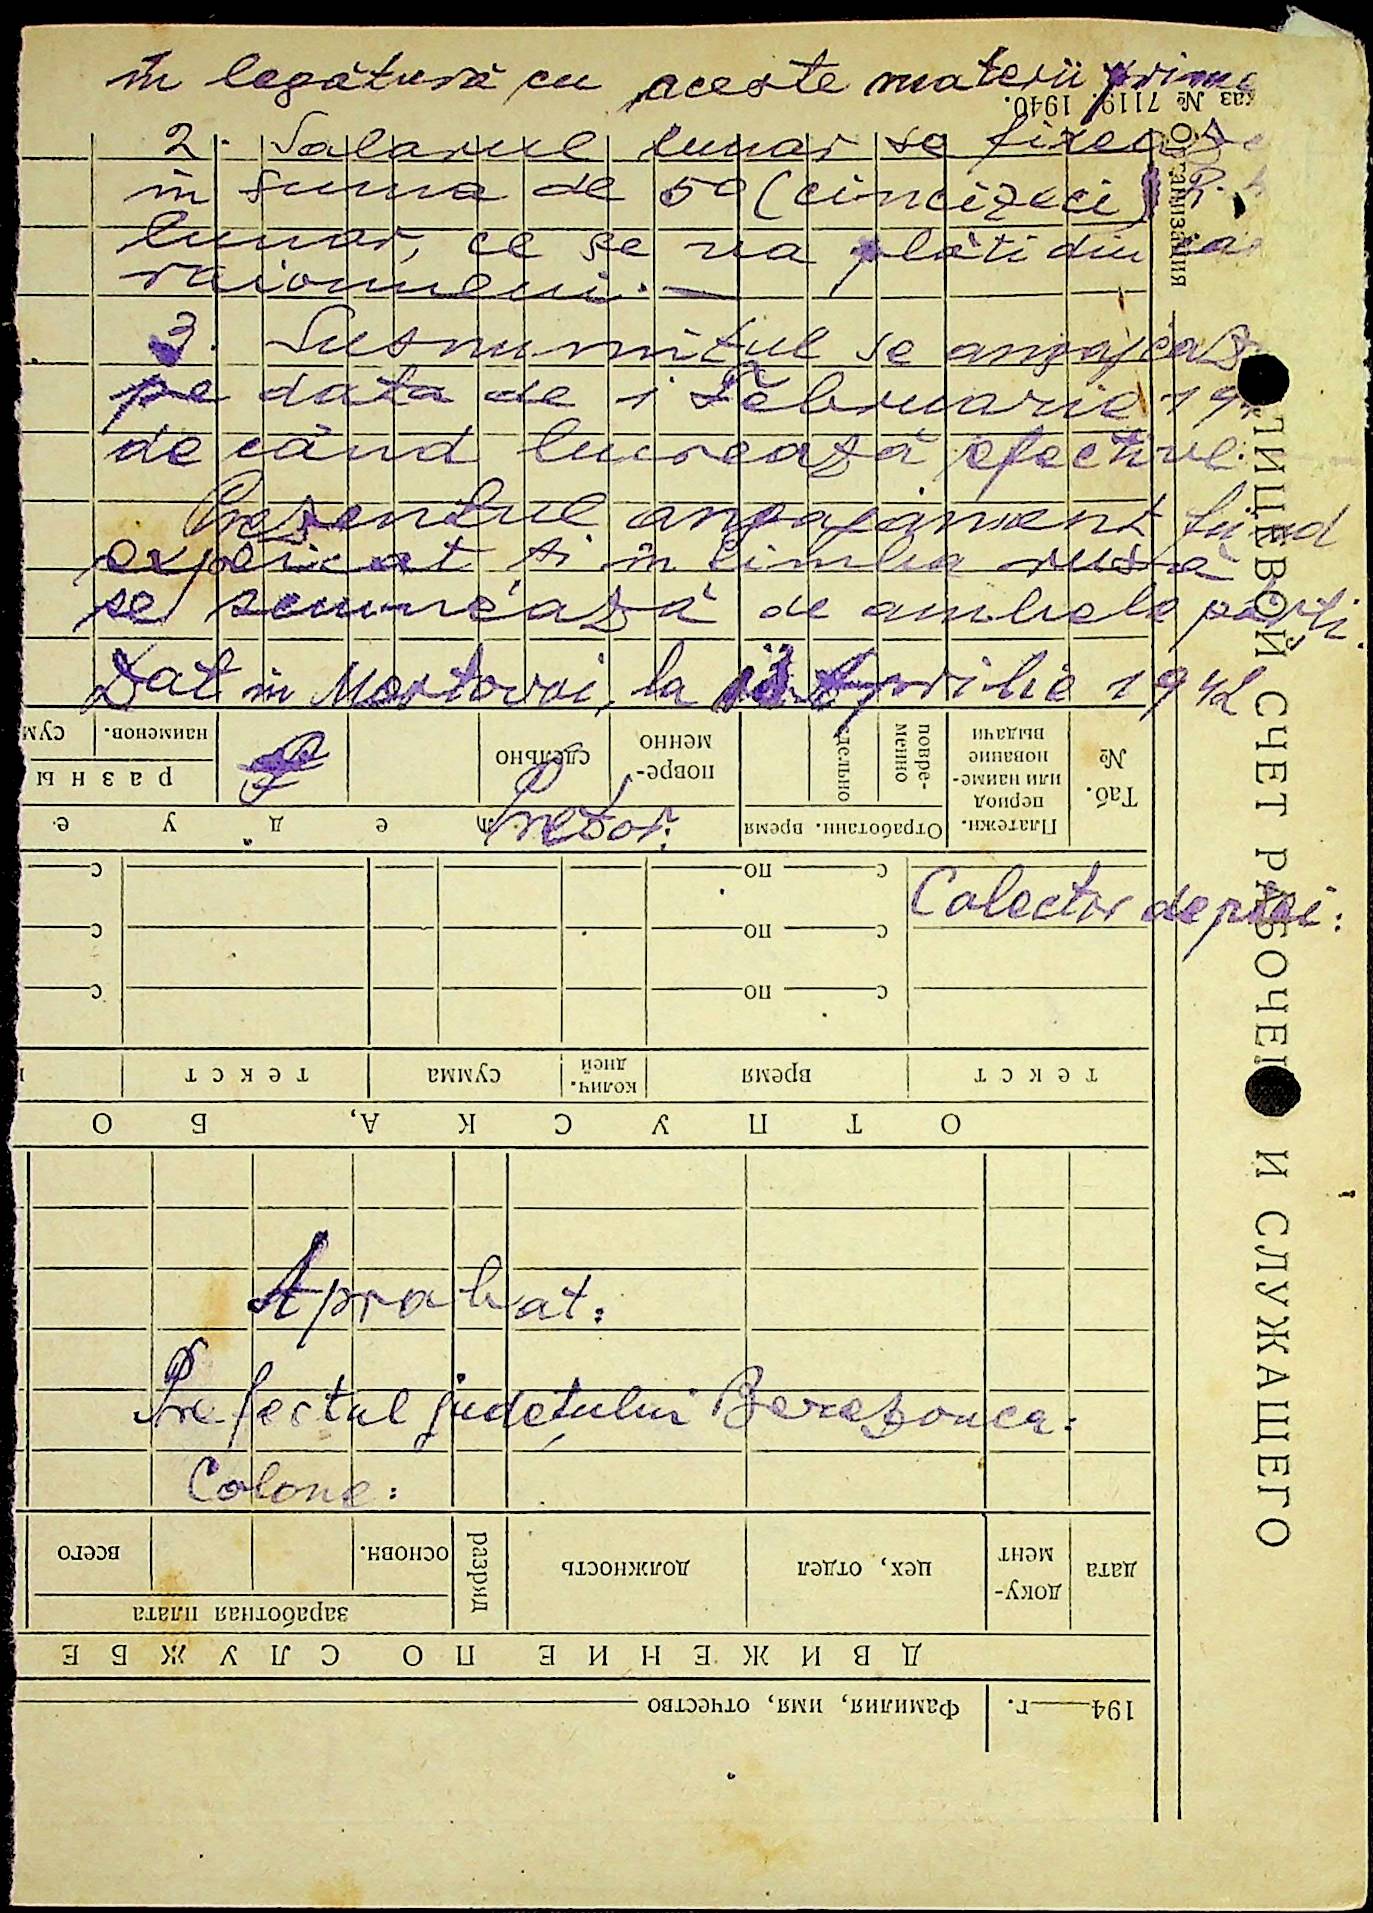 în legătură cu aceste materii prime
каз № 7119. 1940.
Организация
2. Salarul lunar se fixează
în suma de 50 (cincizeci) R.
lunar, ce se va plăti din
raionului. —
3. Susnumitul se angajează
pe data de 1 Februarie 194
de când lucrează efectiv.
Prezentul angajament fiind
explicat și în limba rusă
se semnează de ambele părți.
Dat în Mostovoi, la Aprilie 1942
Таб. №
Платежн. период или наименование выдачи
Отработанн. время
повременно
сдельно
повременно
сдельно
разны
наименов.
сум
Pretor:
Colector de piei:
с — по — с с
с — по — с с
с — по — с с
текст время колич. дней сумма текст
ОТПУСКА, БО
Aprobat:
Prefectul județului Berezovca:
Colone:
дата документ цех, отдел должность разряд основн. всего
заработная плата
ДВИЖЕНИЕ ПО СЛУЖБЕ
194 — г. Фамилия, имя, отчество
ЛИЦЕВОЙ СЧЕТ РАБОЧЕГО И СЛУЖАЩЕГО